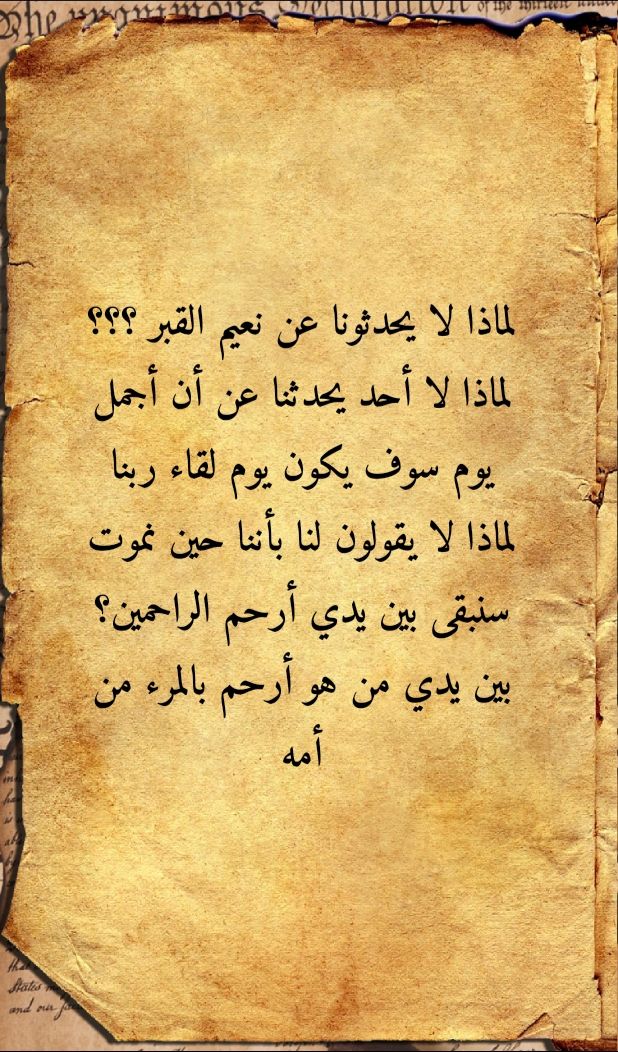 The unanimous Declaration of the thirteen united
لماذا لا يحدثونا عن نعيم القبر ؟؟؟
لماذا لا أحد يحدثنا عن أن أجمل
يوم سوف يكون يوم لقاء ربنا
لماذا لا يقولون لنا بأننا حين نموت
سنبقى بين يدي أرحم الراحمين؟
بين يدي من هو أرحم بالمرء من
أمه
that
States
and our